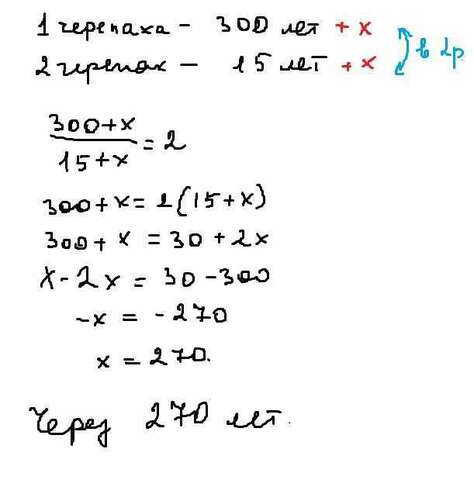 1 черепаха - 300 лет + x
2 черепах - 15 лет + x
в 2р
300+x / 15+x = 2
300+x = 2(15+x)
300+x = 30+2x
x-2x = 30-300
-x = -270
x = 270.
Через 270 лет.